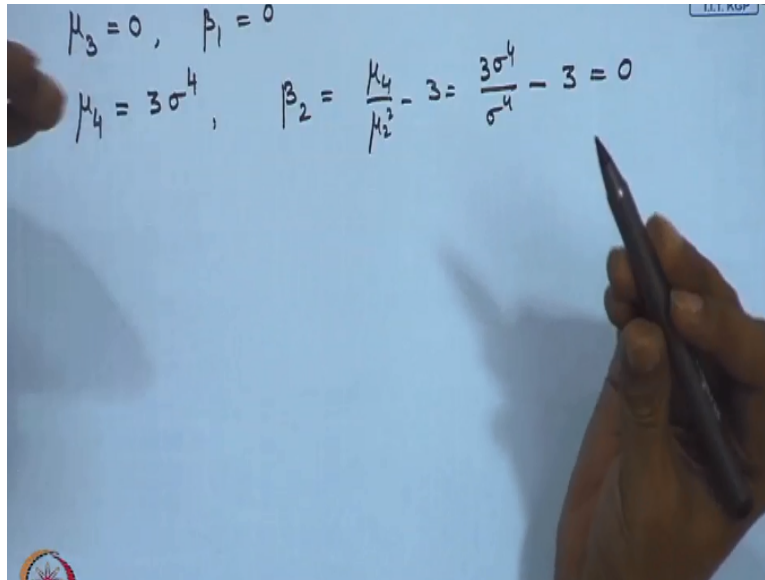 I.I.T. KGP
μ₃ = 0, β₁ = 0
μ₄ = 3σ⁴, β₂ = μ₄/μ₂² - 3 = 3σ⁴/σ⁴ - 3 = 0